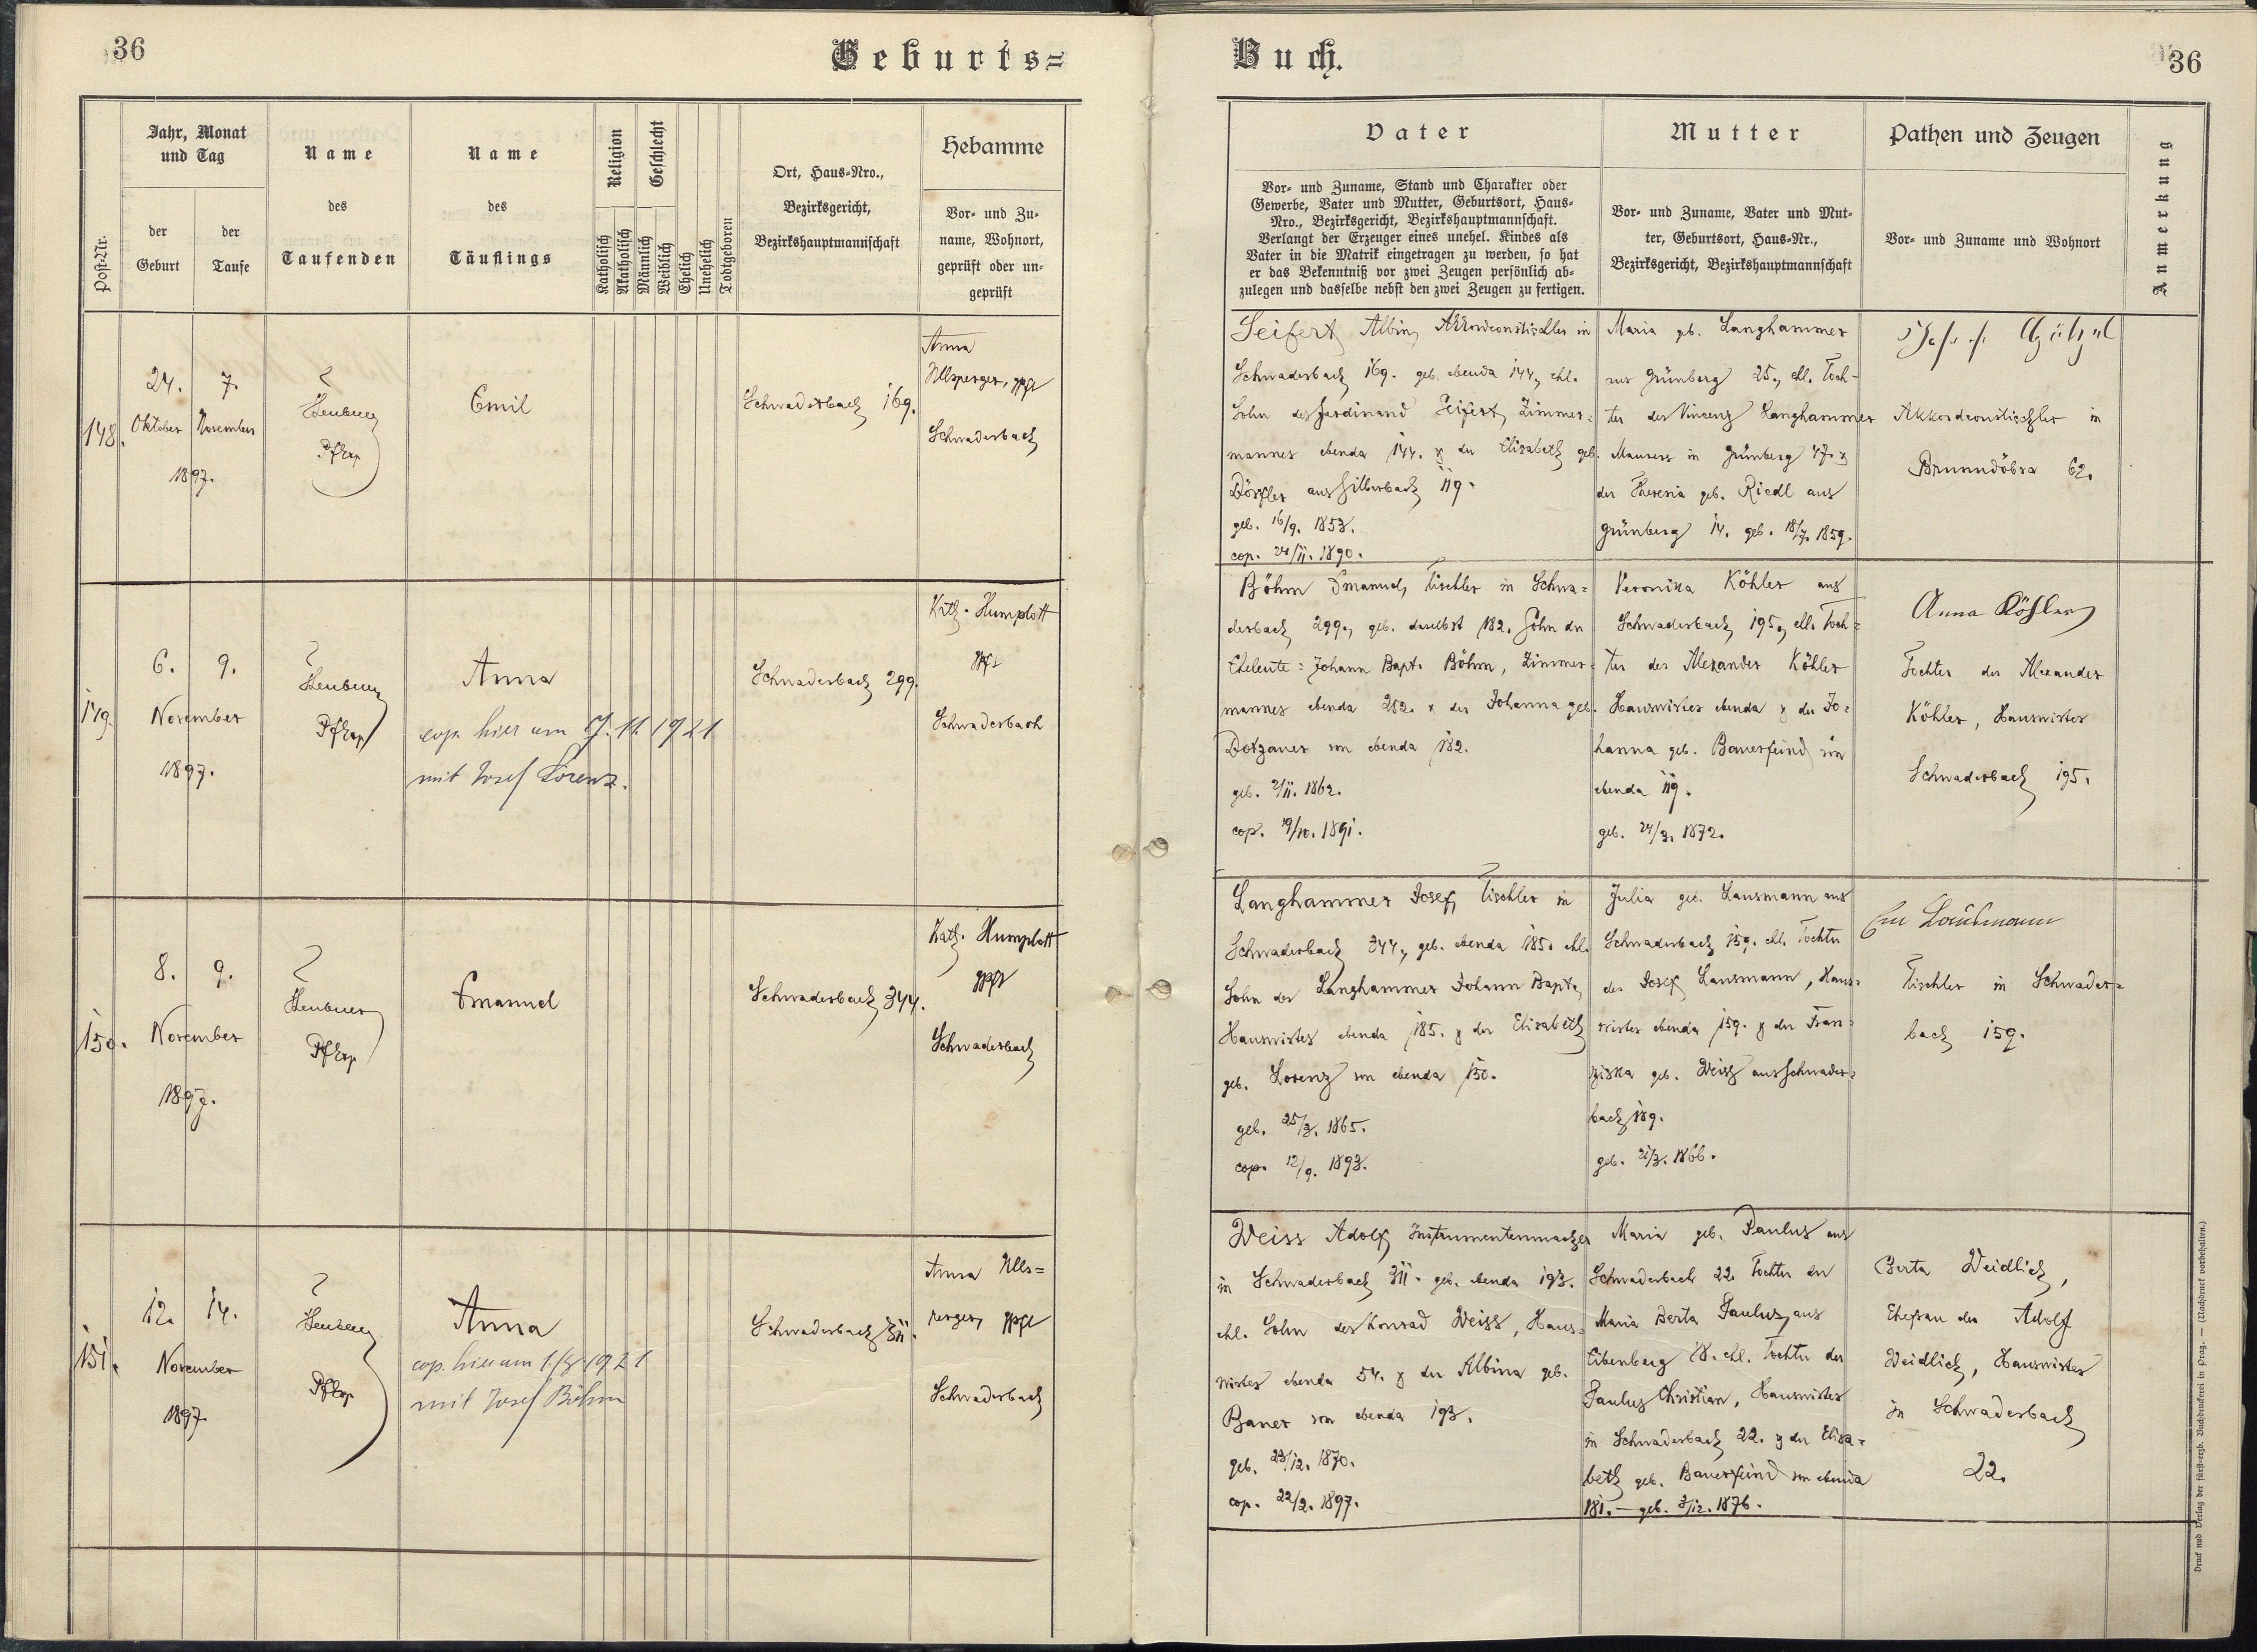 36
Geburts=
Jahr, Monat
und Tag
Name
Name
Religion
Geschlecht
Ort, Haus-Nro.,
Hebamme
Post-Nr.
der
Geburt
der
Taufe
des
Taufenden
des
Täuflings
Katholisch
Akatholisch
Männlich
Weiblich
Ehelich
Unehelich
Todtgeboren
Bezirksgericht,
Bezirkshauptmannschaft
Vor- und Zu-
name, Wohnort,
geprüft oder un-
geprüft
148.
24.
Oktober
7.
November
1897.
Emil
Schwaderbach 169.
Anna
Schwaderbach
149.
6.
9.
November
1897.
Anna
cop. hier am 17. 11. 1921
mit Josef Lorenz.
Schwaderbach 299.
Kath. Humplott
Schwaderbach
150.
8.
9.
November
1897.
Emanuel
Schwaderbach 344.
Kath. Humplott
Schwaderbach
151.
12.
14.
November
1897.
Anna
cop. hier am 1./8. 1921
mit Josef Böhm
Schwaderbach 311.
Anna Ulls=
perger,
Schwaderbach
Buch.
36
Vater
Mutter
Pathen und Zeugen
Anmerkung
Vor- und Zuname, Stand und Charakter oder
Gewerbe, Vater und Mutter, Geburtsort, Haus-
Nro., Bezirksgericht, Bezirkshauptmannschaft.
Verlangt der Erzeuger eines unehel. Kindes als
Vater in die Matrik eingetragen zu werden, so hat
er das Bekenntniß vor zwei Zeugen persönlich ab-
zulegen und dasselbe nebst den zwei Zeugen zu fertigen.
Vor- und Zuname, Vater und Mut-
ter, Geburtsort, Haus-Nr.,
Bezirksgericht, Bezirkshauptmannschaft
Vor- und Zuname und Wohnort
Seifert Albin, Akkordeontischler in
Schwaderbach 169. geb. ebenda 144, ehl.
Sohn des Ferdinand Seifert, Zimmer=
mannes ebenda 144. & der Elisabeth geb.
Dörfler aus Silberbach 119.
geb. 16/9. 1853.
cop. 24/11. 1890.
Maria geb. Langhammer
aus Grünberg 25., ehl. Toch-
ter des Vincenz Langhammer
Maurers in Grünberg 47. &
der Theresia geb. Riedl aus
Grünberg 14. geb. 18/7. 1859.
Akkordeontischler in
Brunndöbra 62.
Böhm Emanuel, Tischler in Schwa=
derbach 299., geb. daselbst 182. Sohn der
Eheleute: Johann Bapt. Böhm, Zimmer=
mannes ebenda 252. & der Johanna geb.
Dotzauer von ebenda 182.
geb. 2/11. 1862.
cop. 19/10. 1891.
Veronika Köhler aus
Schwaderbach 195., ehl. Toch=
ter des Alexander Köhler
Hauswirtes ebenda & der Jo=
hanna geb. Bauerfeind von
ebenda 119.
geb. 24/3. 1872.
Anna Köhler
Tochter des Alexander
Köhler, Hauswirtes
Schwaderbach 195.
Langhammer Josef, Tischler in
Schwaderbach 344., geb. ebenda 185. ehl.
Sohn des Langhammer Johann Bapt.,
Hauswirtes ebenda 185. & der Elisabeth
geb. Lorenz von ebenda 150.
geb. 25/3. 1865.
cop. 12/9. 1893.
Julia geb. Lausmann aus
Schwaderbach 159. ehl. Tochter
des Josef Lausmann, Haus=
wirtes ebenda 159. & der Fran=
ziska geb. Weiss aus Schwader=
bach 189.
geb. 21/3. 1866.
Tischler in Schwader=
bach 159.
Weiss Adolf, Instrumentenmacher
in Schwaderbach 311. geb. ebenda 193.
ehl. Sohn des Konrad Weiss, Haus=
wirtes ebenda 54. & der Albina geb.
Bauer von ebenda 193.
geb. 23/12. 1870.
cop. 22/2. 1897.
Maria geb. Paulus aus
Schwaderbach 22. Tochter der
Maria Berta Paulus, aus
Eibenberg 18. ehl. Tochter des
Paulus Christian, Hauswirtes
in Schwaderbach 22. & der Elisa=
beth geb. Bauerfeind von ebenda
181. — geb. 3/12. 1876.
Berta Weidlich,
Ehefrau des Adolf
Weidlich, Hauswirtes
in Schwaderbach
22.
Druck und Verlag der fürst-erzb. Buchdruckerei in Prag. — (Nachdruck vorbehalten.)